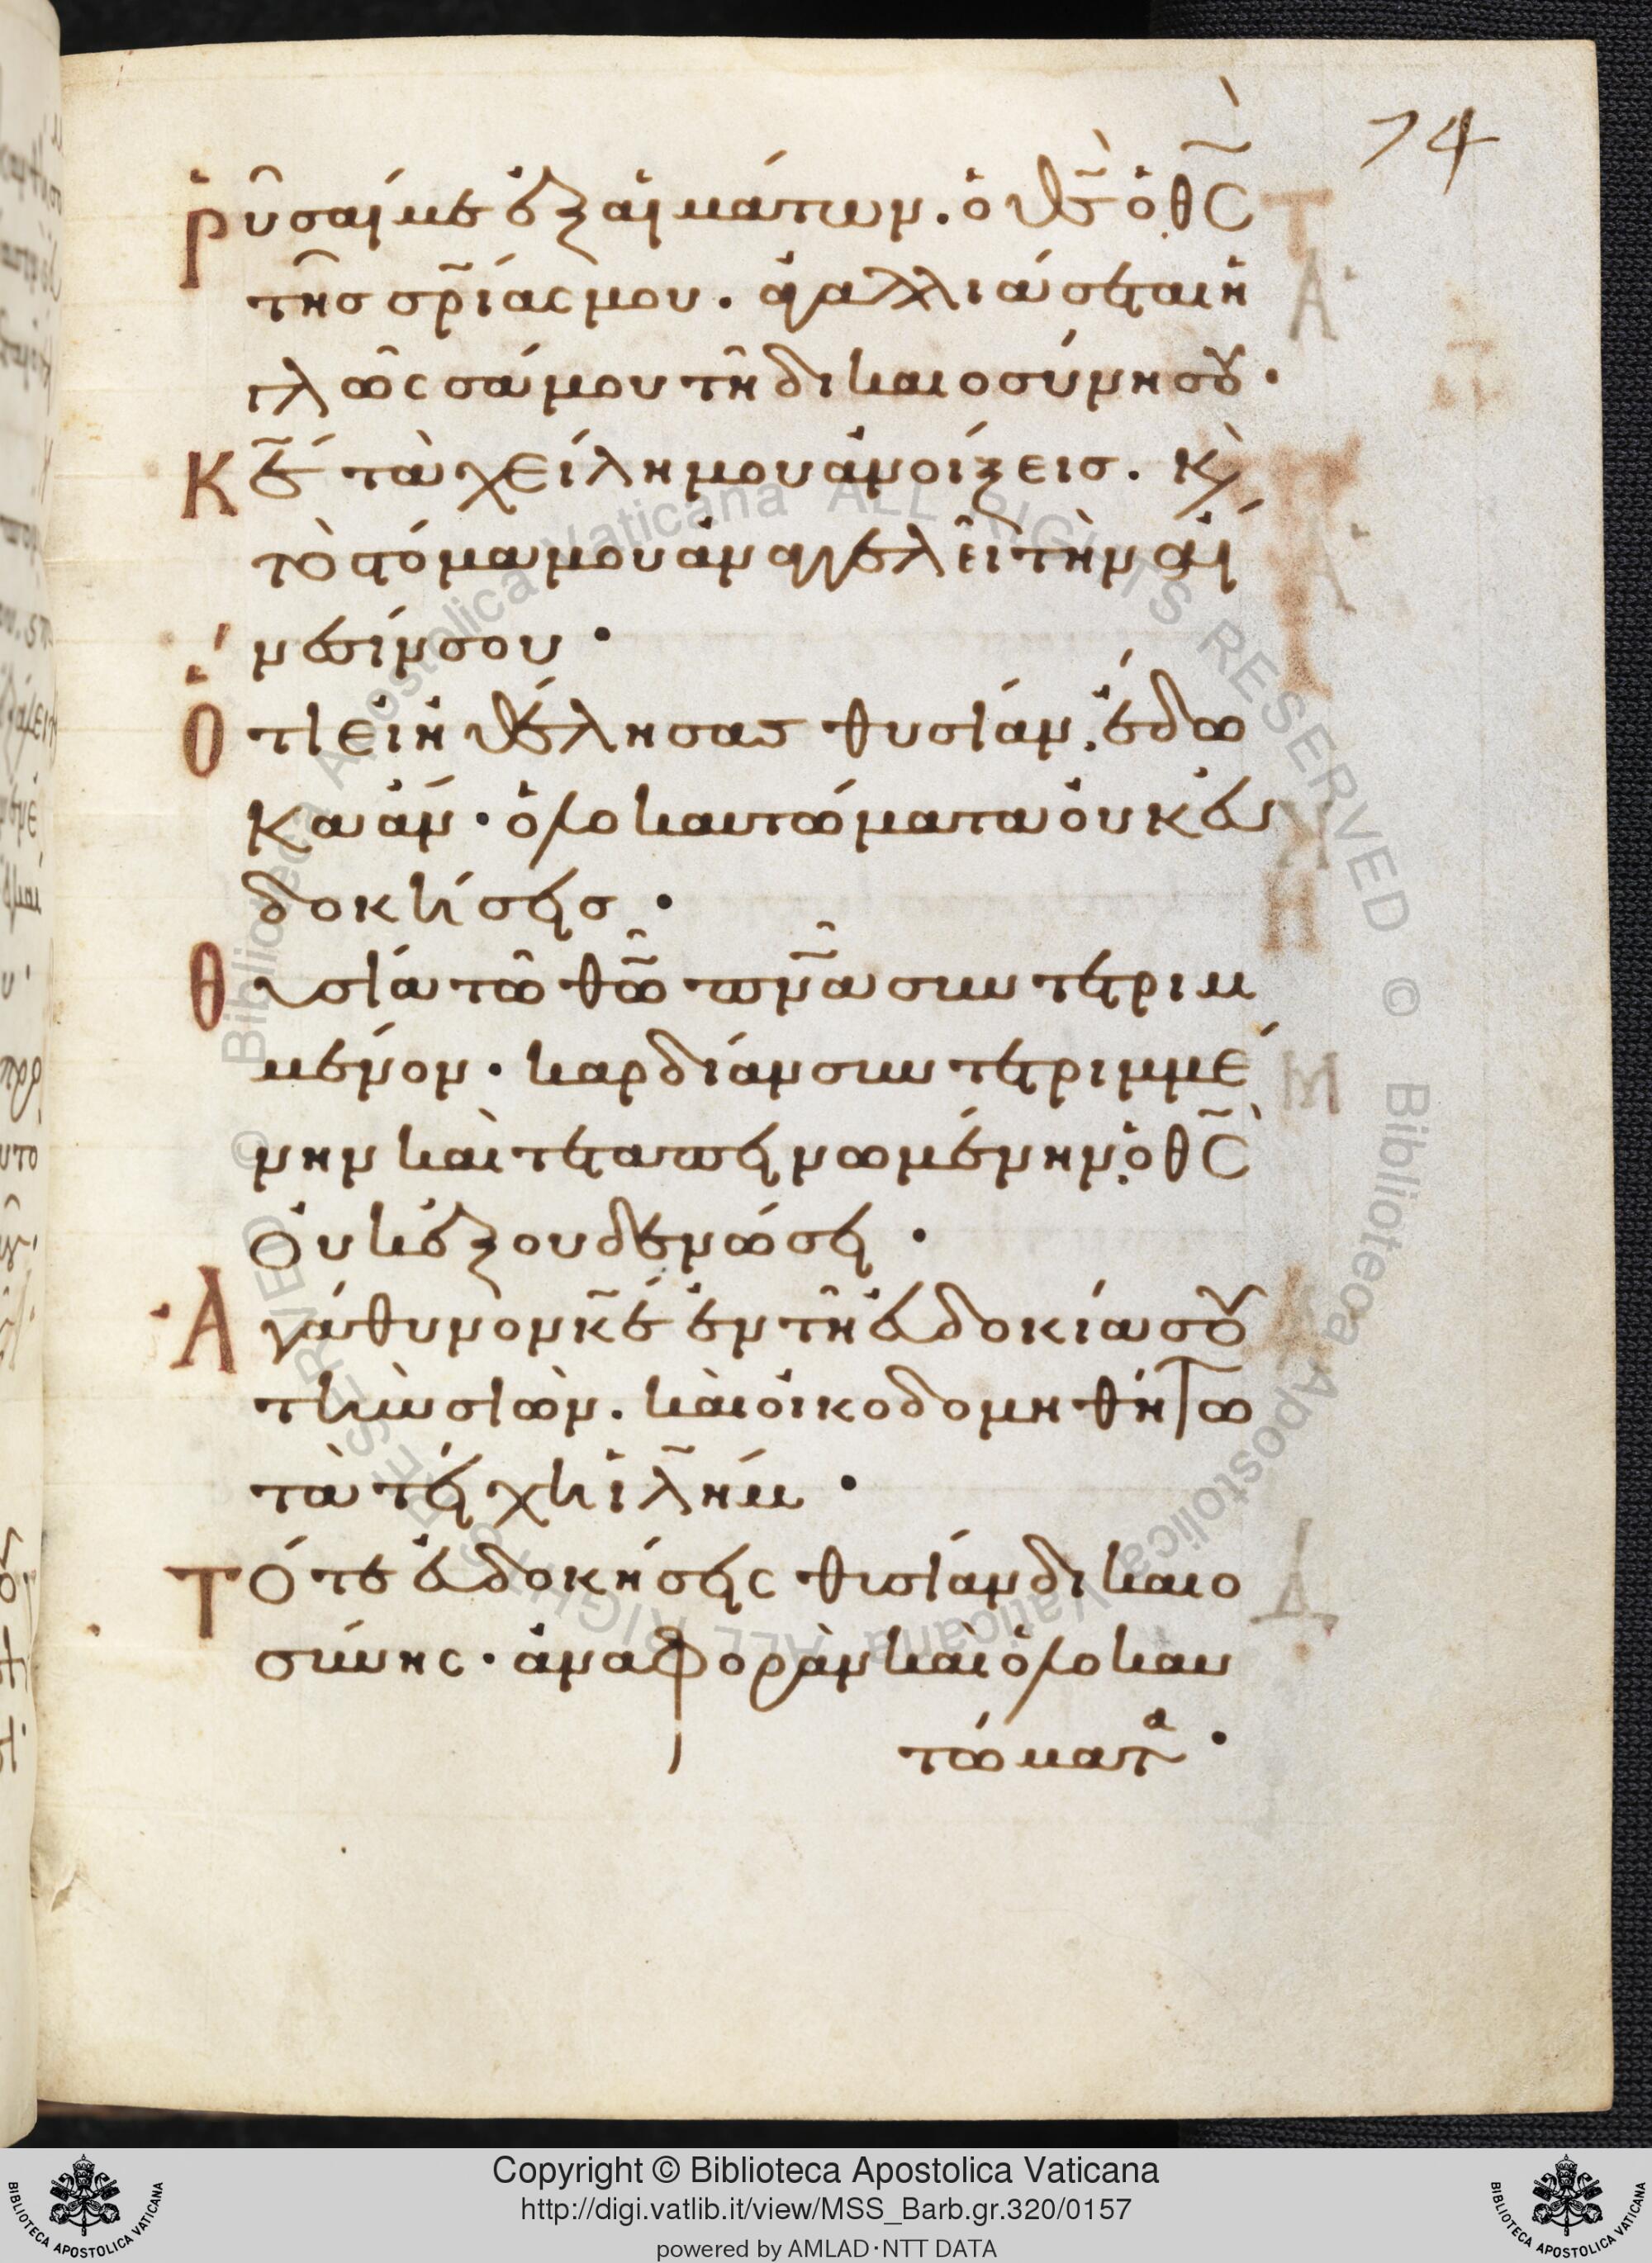 74
Ῥῦσαί με ἐξ αἱμάτων. ὁ θς̃ ὁ θς̃
τῆς σρ̃ίας μου. ἀγαλλιάσεται ἡ
γλῶσσά μου τὴ δικαιοσύνη σου·
Κε̃ τὰ χείλη μου ἀνοίξεις. κ̀
τὸ στόμα μου ἀναγγελεῖ τὴν αἴ
νεσίν σου·
Ὅτι εἰ ἠθέλησας θυσίαν, ἔδω
κα ἄν· ὁλοκαυτώματα οὐκ εὐ
δοκήσεις·
Θυσία τῶ θῶ̃ πνᾶ συντετριμ
μένον· καρδίαν συντετριμμέ
νην καὶ τεταπεινωμένην, ὁ θς̃
οὐκ ἐξουδενώσει·
Ἀγάθυνον κε̃ ἐν τῆ εὐδοκία σου
τὴν σιὼν. καὶ οἰκοδομηθήτω
τὰ τείχη ἰλ̃ήμ·
Τότε εὐδοκήσεις θυσίαν δικαιο
σύνης· ἀναφορὰν καὶ ὁλοκαυ
τώματα·
Copyright © Biblioteca Apostolica Vaticana
http://digi.vatlib.it/view/MSS_Barb.gr.320/0157
powered by AMLAD·NTT DATA
BIBLIOTECA APOSTOLICA VATICANA
BIBLIOTECA APOSTOLICA VATICANA